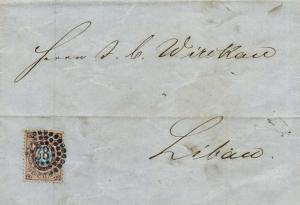 Herrn J. C. Wirckau
Libau.